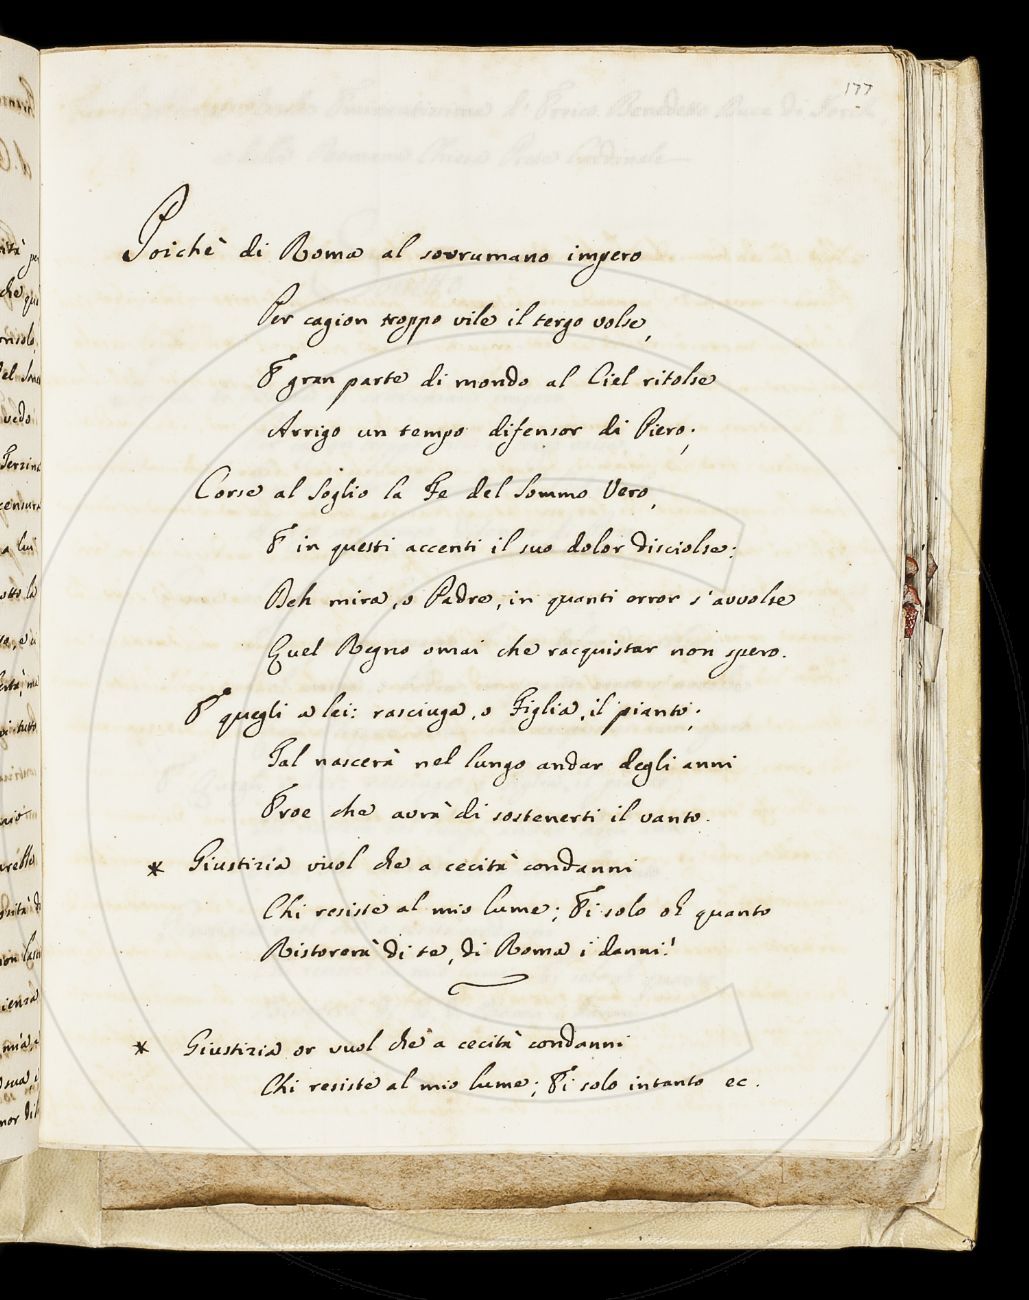 177
Poichè di Roma al sovrumano impero
Per cagion troppo vile il tergo volse,
E gran parte di mondo al Ciel ritolse
Arrigo un tempo difensor di Piero;
Corse al Soglio la Fe del Sommo Vero,
E in questi accenti il suo dolor disciolse:
Deh mira, o Padre, in quanti error s'avvolse
Quel Regno omai che racquistar non spero.
E quegli a lei: rasciuga, o Figlia, il pianto;
Tal nascerà nel lungo andar degli anni
Eroe che avrà di sostenerti il vanto.
* Giustizia vuol che a cecità condanni
Chi resiste al mio lume; Ei solo oh quanto
Ristorerà di te, di Roma i danni!
* Giustizia or vuol che a cecità condanni
Chi resiste al mio lume; Ei solo intanto ec.